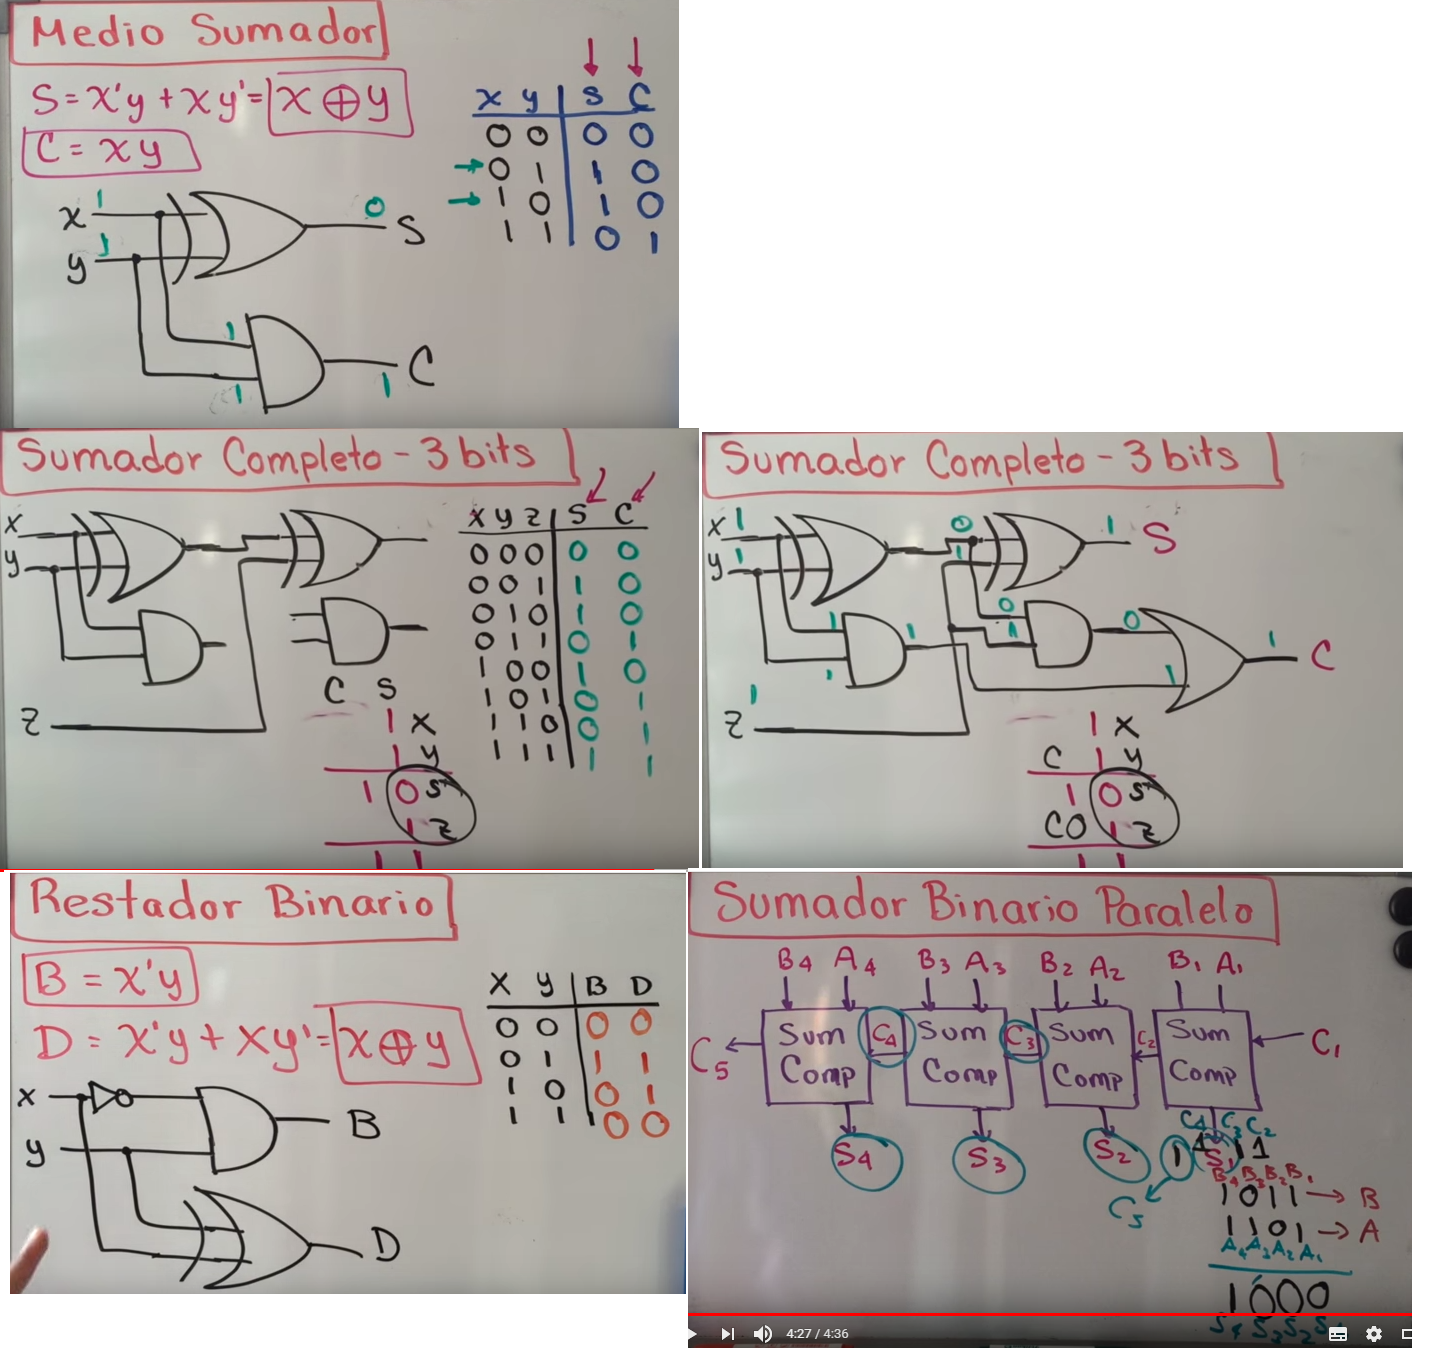 Medio Sumador
S = x'y + xy' = x ⊕ y
C = xy
x y | S C
0 0 0 0
0 1 1 0
1 0 1 0
1 1 0 1
x 1
0 S
y 1
1
1
C
1
Sumador Completo - 3 bits
x
y
z
x y z | S C
0 0 0 0 0
0 0 1 1 0
0 1 0 1 0
0 1 1 0 1
1 0 0 1 0
1 0 1 0 1
1 1 0 0 1
1 1 1 1 1
C S
1 x
1 y
1 0 S
1 z
1 1
Sumador Completo - 3 bits
x 1
y 1
0
1
1 S
1
1
1
0
1
0
1
1 C
1
z
1 x
C 1 y
1 0 S
C0 1 z
1 1
Restador Binario
B = x'y
D = x'y + xy' = x ⊕ y
x y | B D
0 0 0 0
0 1 1 1
1 0 0 1
1 1 0 0
x
B
y
D
Sumador Binario Paralelo
B4 A4 B3 A3 B2 A2 B1 A1
C5 Sum Comp C4 Sum Comp C3 Sum Comp C2 Sum Comp C1
S4 S3 S2 S1
C4 C3 C2
1 1 1 1
C5
B4 B3 B2 B1
1011 → B
1101 → A
A4 A3 A2 A1
1000
S4 S3 S2 S
4:27 / 4:36